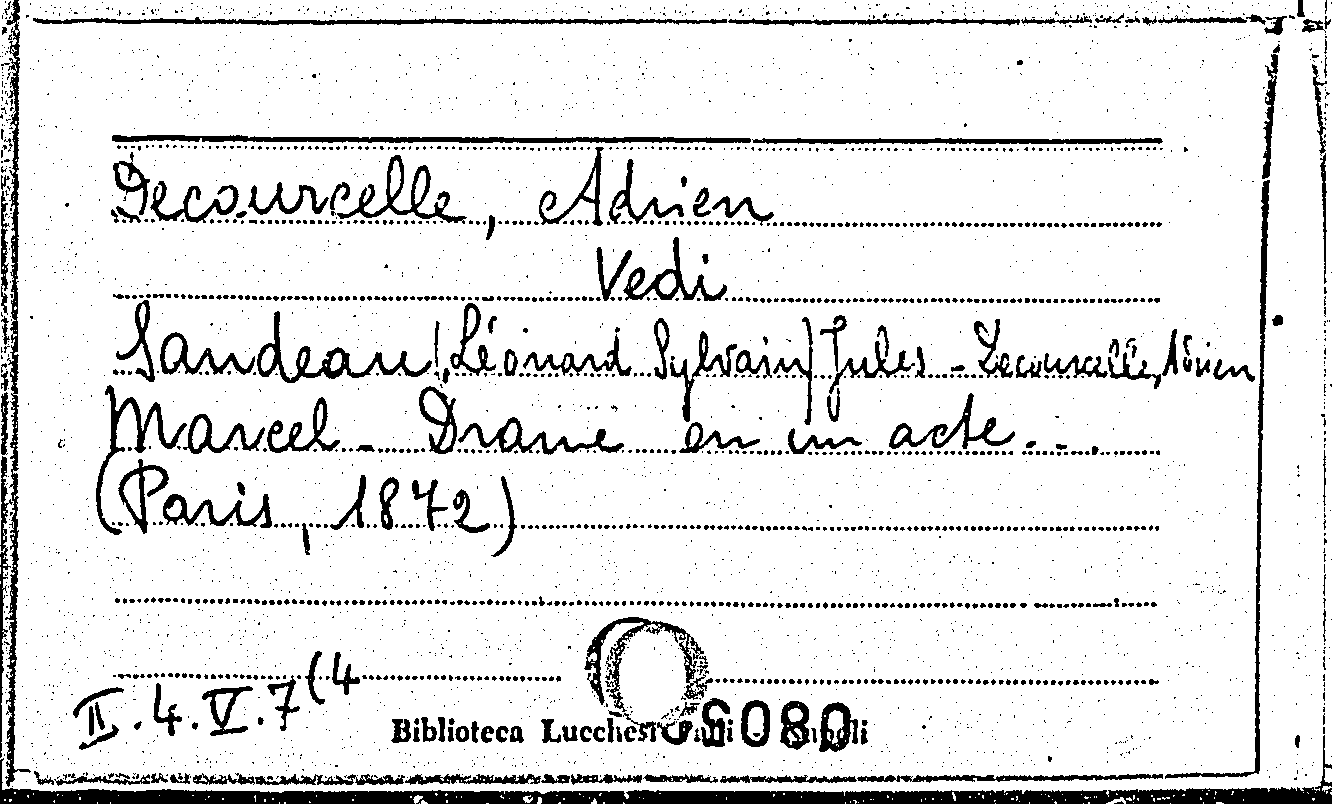 Decourcelle, Adrien
Vedi
Sandeau, (Léonard Sylvain) Jules - Decourcelle, Adrien
Marcel - Drame en un acte...
(Paris, 1872)
II.4.V.7(4
Biblioteca Lucchesi